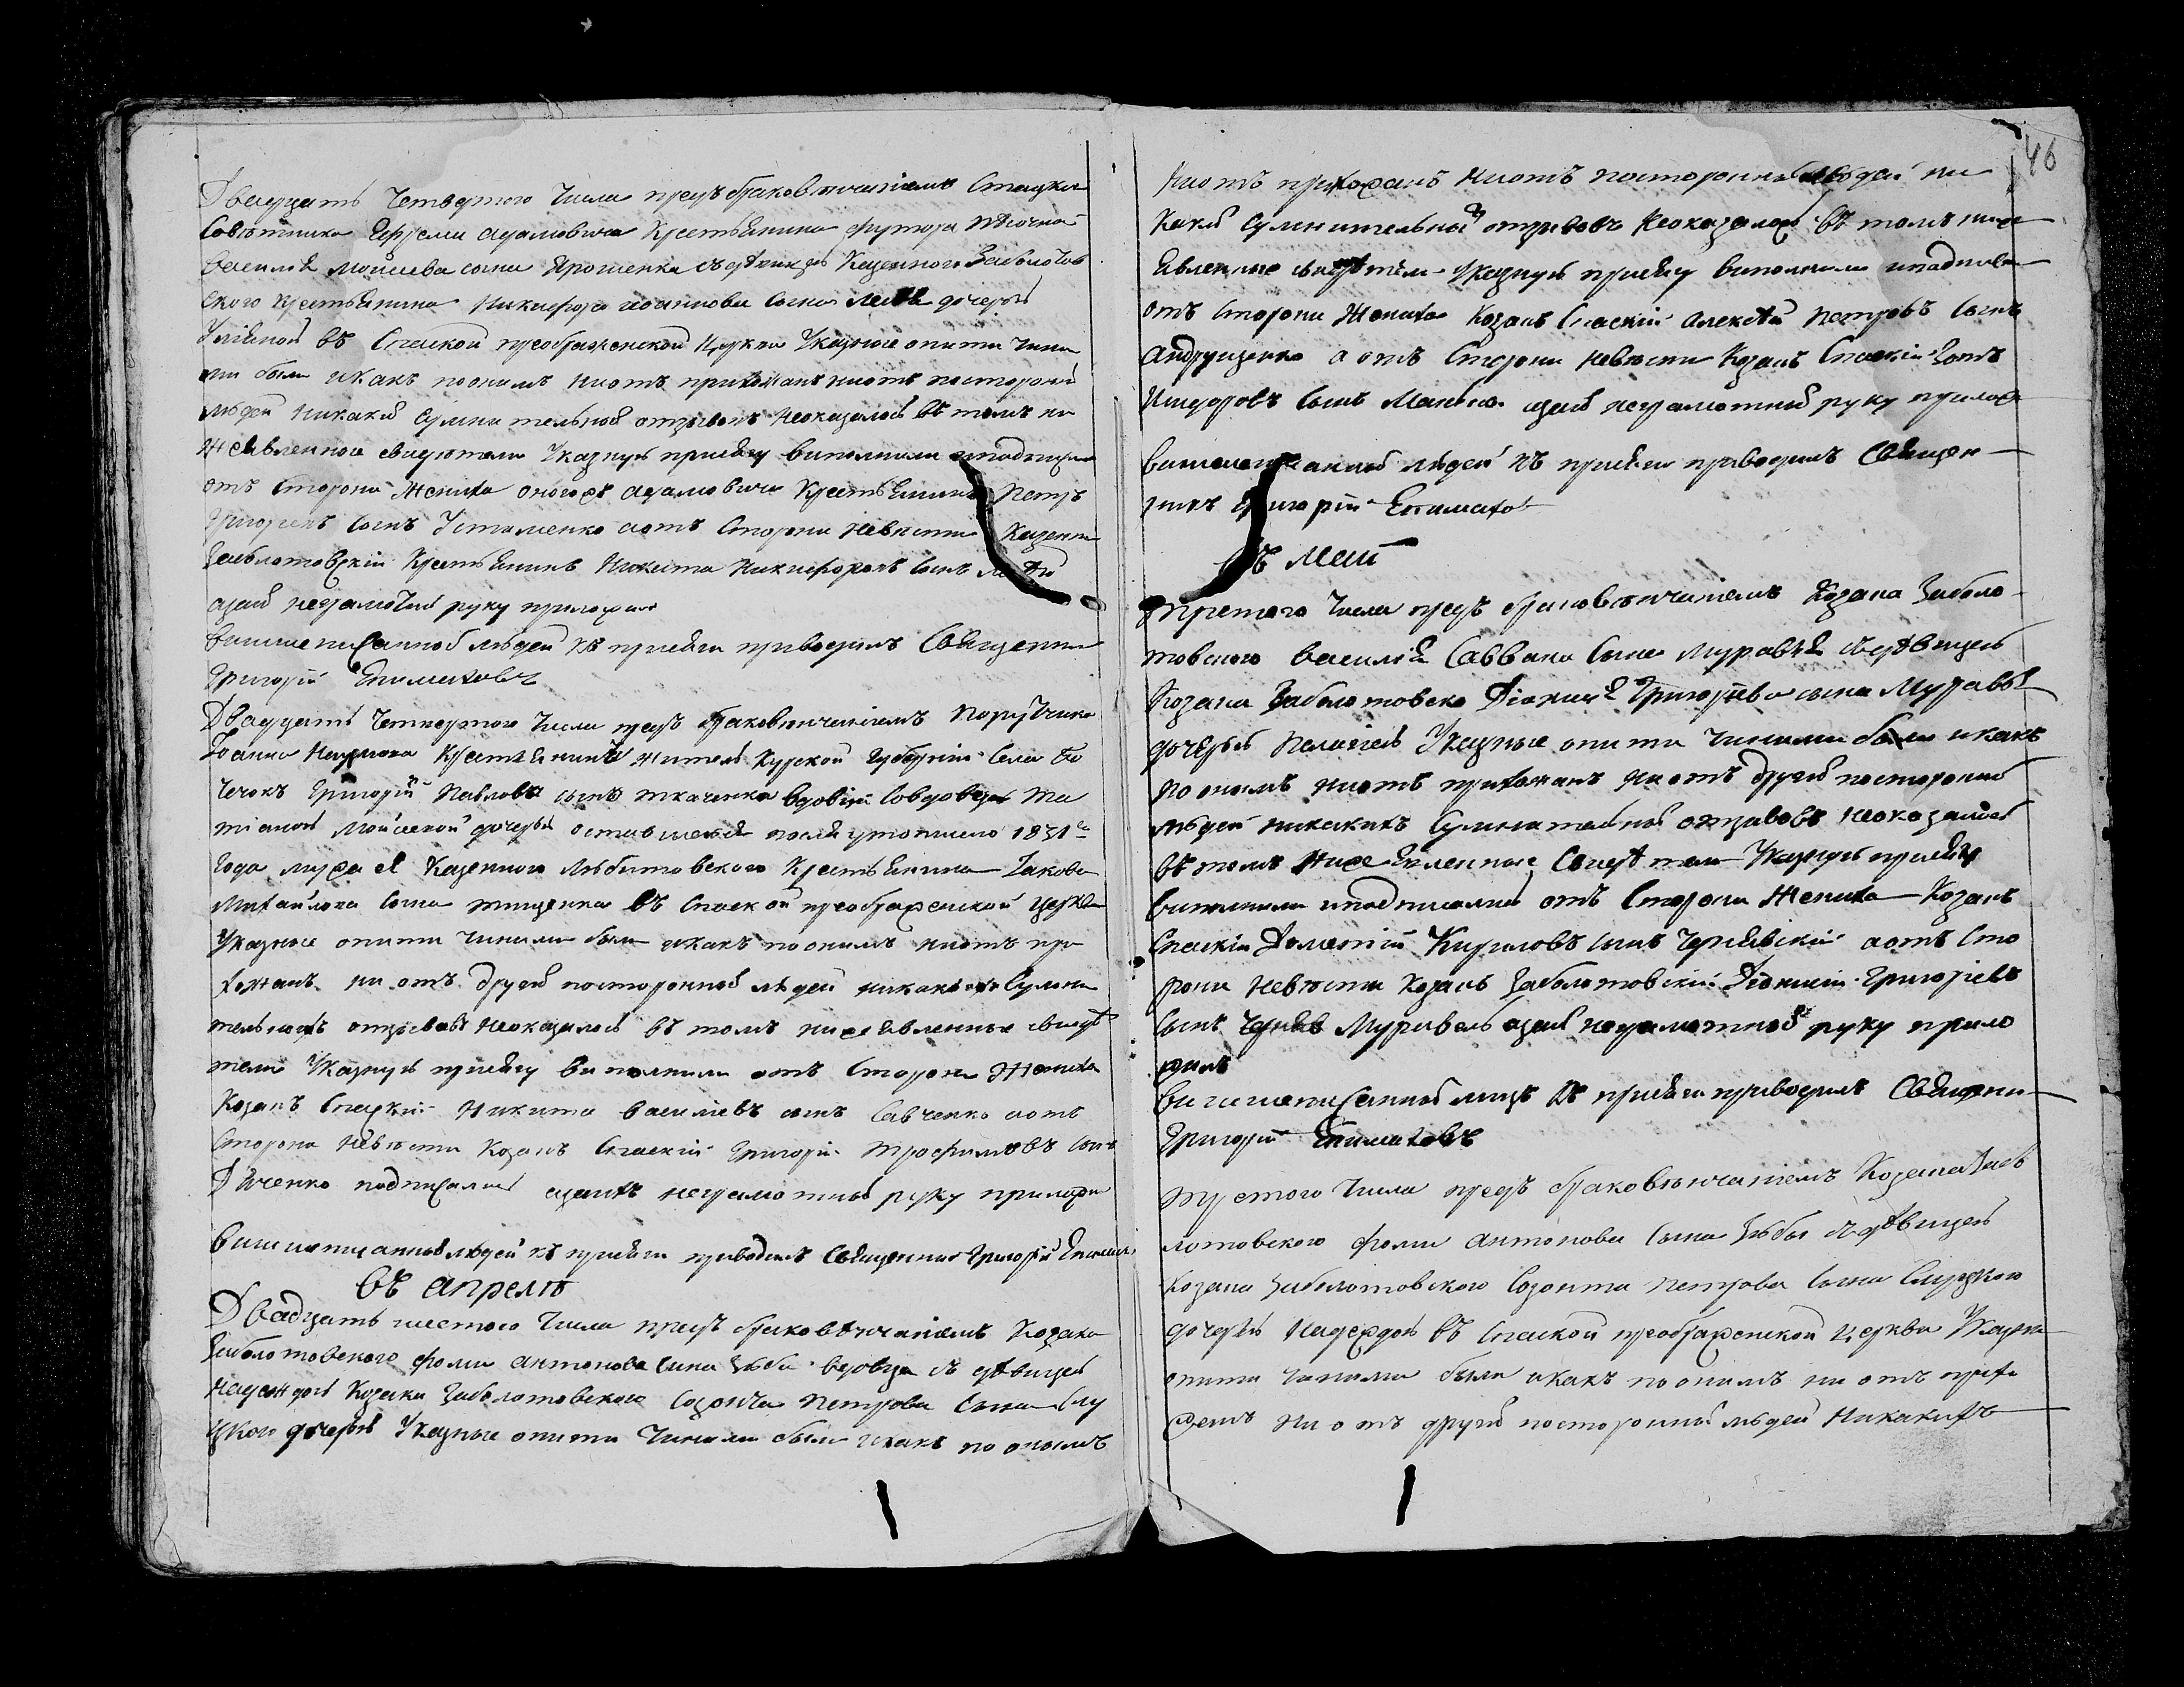 Двадцать Четвертого Числа предъ браковѣнчаніемъ Статско
Совѣтника Ефрема Адамовича Крестьянина футора
Василія Моисѣева сына Ярошенка съ дѣвицею Казенного Заболотов
ского крестьянина Никифора Іоаннова сына дочерью
въ Спаской преображенской Церкви Указные опити чини
ми были икакъ поонимъ ниотъ прихожанъ ниотъ постороній
людей никакій Сумнительной отзывовъ Неоказалось въ томъ ни
жеявленное свидѣтели Указную присягу виполнили иподписал
отъ Сторони Жениха оногожъ Адамовича Крестьянинъ Петръ
Григориевъ сынъ Устименко аотъ Сторони Невѣсти Казенни
Заболотовскій Крестьянинъ Никита Никифоровъ Сынъ
азаи неграмотній руку приложил
вишеписанной людей къ присяги приводилъ Священни
Григорій Епимаховъ
Двадцать Четвертого Числа предъ браковѣнчаніемъ Порутчика
Іоанна Наумова Крестьянинъ житель Курской Губерній Села Бо
Григорій Павловъ сынъ ткаченко вдовій Совдовою Та
тианою Мойсеевой дочерью оставшеюся послѣ утопшего 1831го
Года мужа ея Казенного Любитовского Крестьянина Іакова
Михайлова Сына тищенка въ Спаской преображенской Церкви
Указные опити Чиними были икакъ поонимъ ниотъ при
хожанъ ни отъ другой посторонной людей никакихъ Сумни
тельнихъ отзывовъ Неоказалось въ томъ нижеявленные свидѣ
тели Указную присягу виполнили отъ Сторони Жениха
Козакъ Спаскій Никита Василіевъ сынъ Савченко аотъ
Сторони Невѣсти Козакъ Спаскій Григорій Трофимовъ сынъ
Дяченко подписались азаихъ неграмотный руку приложи
вишеписанной людей къ присяги приводилъ Священникъ Григорій Епимах
въ апрелѣ
Двадцать шестого Числа предъ браковѣнчаніемъ Козака
Заболотовского фоми Антонова сина Зюби вдовца съ дѣвицею
Надеждою Козака Заболотовского Созонта Петрова Сина Слу
цкого дочерью Указные опити Чиними были икакъ по онымъ
46
Ниотъ прихожанъ ниотъ посторонной людей ни
какій Сумнительный отзивовъ Неоказалось въ томъ ниже
явленные свидѣтели Указную присягу виполнили иподписал
отъ Сторони Жениха Козакъ Спаскій Алексѣй Петровъ Сынъ
Андрущенко а отъ Сторони Невѣсти Козакъ Спаскій Зотъ
Исидоровъ Сынъ азаи неграмотный руку прилож
вишеписанной людей къ присяги приводилъ Священ
никъ Григорій Епимахов
въ Маіи
третого Числа предъ браковѣнчаніемъ Козака Заболо
товского Василія Саввина Сына Муравля съ дѣвицею
Козака Заболотовско Діонисія Григоріева сына Муравл
дочерью Пелагіею Указные опити Чиними были икакъ
по онымъ ниотъ прихожанъ ни отъ другой постороной
людей никакихъ Сумнительной отзивовъ неоказалось
въ томъ Нижеявленные Свидѣтели Указную присягу
виполнили иподписались отъ Сторони Жениха Козакъ
Спаскій Дометій Кириловъ сынъ Чернявскій аотъ Сто
рони Невѣсти Козакъ Заболотовскій Діонисій Григоріевъ
Сынъ Муравель азаи неграмотной руку прило
жилъ
вишеписанной лицъ къ присяги приводилъ Священни
Григорій Епимаховъ
третого Числа предъ браковѣнчаніемъ Козака Забо
лотовского фоми Антонова Сына Зюбы съ дѣвицею
Козака Заболотовского Созонта Петрова Сына Слуцкого
дочерью Надеждою въ Спаской преображенской Церкви Указни
опити Чиними были икакъ поонимъ ни отъ прихо
жанъ Ни отъ другой посторонной людей Никакихъ